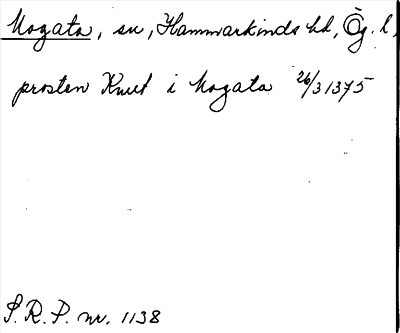 Mogata, sn, Hammarkinds hd, Ög. l.
prosten Knut i Mogata 26/3 1375
S.R.P. nr. 1138